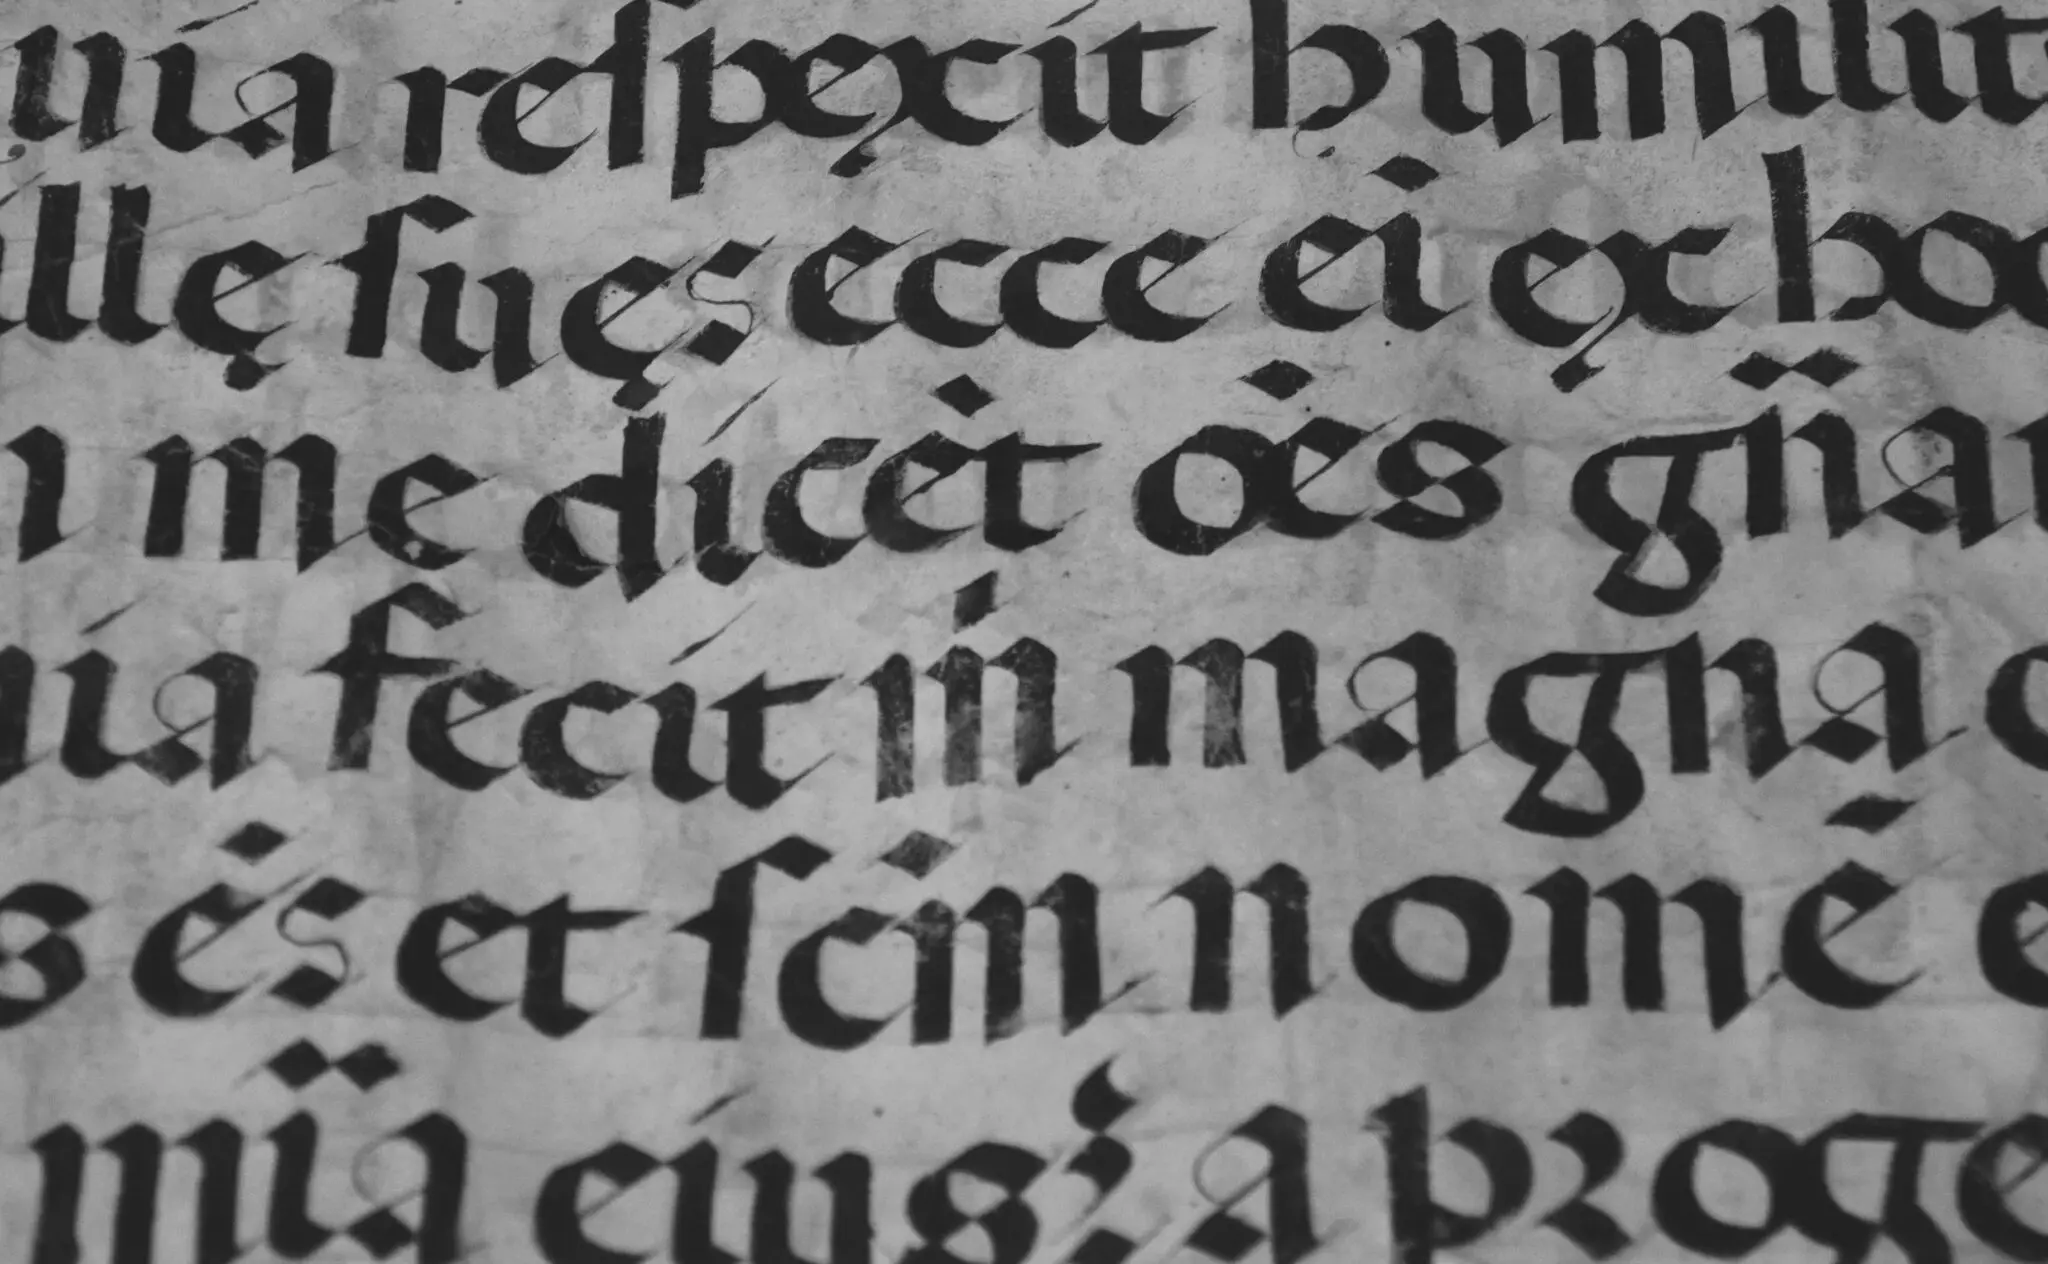 uia reſpęxit humilit
illę ſuęs ecce ei ęx hoc
i me dicėt oės gn̈a
uia fecit mi magna
s ės et ſcm nomē e
mïa eius; a proge